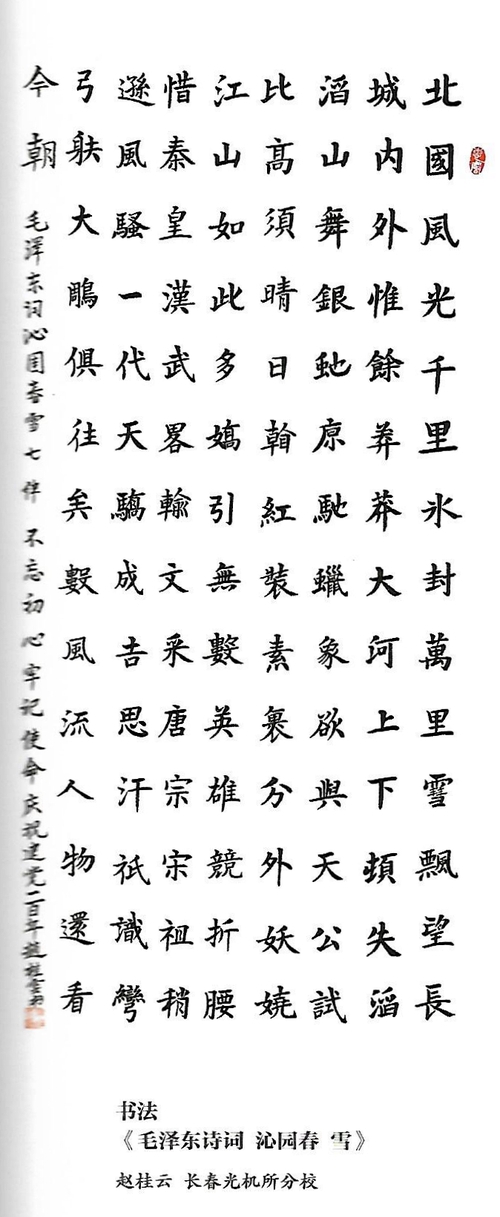 北國風光千里氷封萬里雪飄望長
城内外惟餘莽莽大河上下頓失滔
滔山舞銀虵原馳蠟象欲與天公試
比髙須晴日紅裝素裹分外妖嬈
江山如此多嬌引無數英雄競折腰
惜秦皇漢武畧輸文采唐宗宋祖稍
遜風騷一代天驕成吉思汗祇識彎
弓䠶大鵰俱往矣數風流人物還看
今朝 毛泽东词沁园春雪 七 不忘初心牢记使命庆祝建党一百年赵桂云书
书法
《毛泽东诗词 沁园春 雪》
赵桂云 长春光机所分校